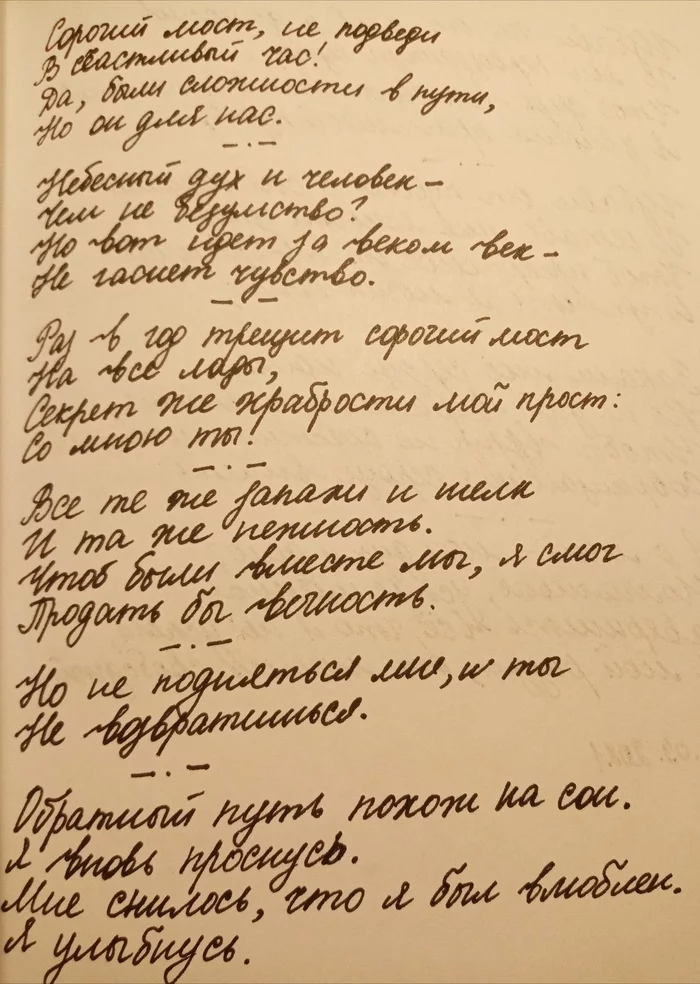 Сорочий мост, не подведи
В счастливый час!
Да, были сложности в пути,
Но он для нас.
— . —
Небесный дух и человек –
Чем не безумство?
Но вот идет за веком век –
Не гаснет чувство.
— . —
Раз в год трещит сорочий мост
На все лады,
Секрет же храбрости мой прост:
Со мною ты!
— . —
Все те же запахи и шелк
И та же нежность.
Чтоб были вместе мы, я смог
Продать бы вечность.
— . —
Но не подняться мне, и ты
Не возвратишься.
— . —
Обратный путь похож на сон.
Я вновь проснусь.
Мне снилось, что я был влюблен.
Я улыбнусь.